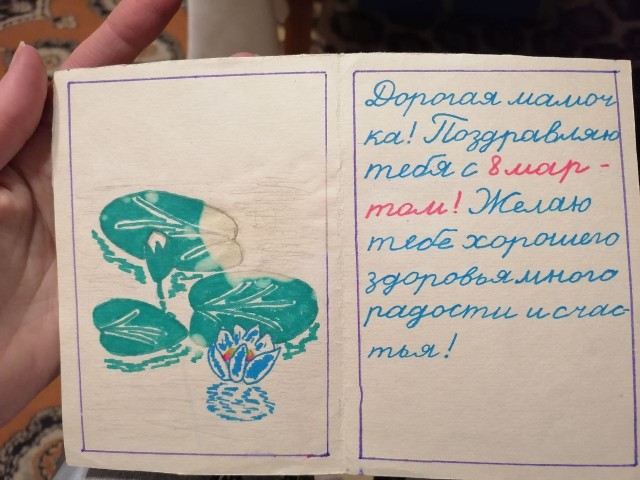 Дорогая мамоч-
ка! Поздравляю
тебя с 8 мар-
том! Желаю
тебе хорошего
здоровья много
радости и счас-
тья!